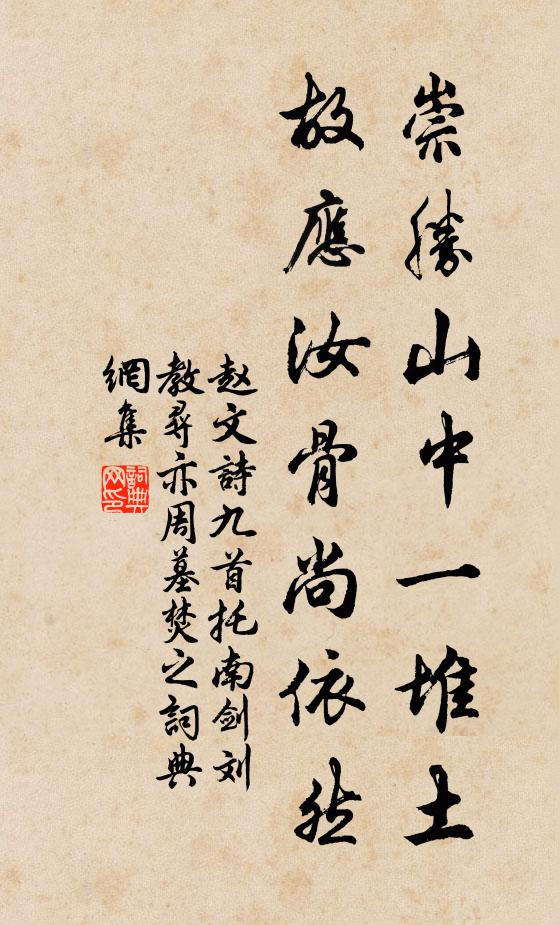 崇勝山中一堆土
故應汝骨尚依然
赵文詩九首托南剑刘
教尋亦周墓焚之詞典
網集
詞典網印